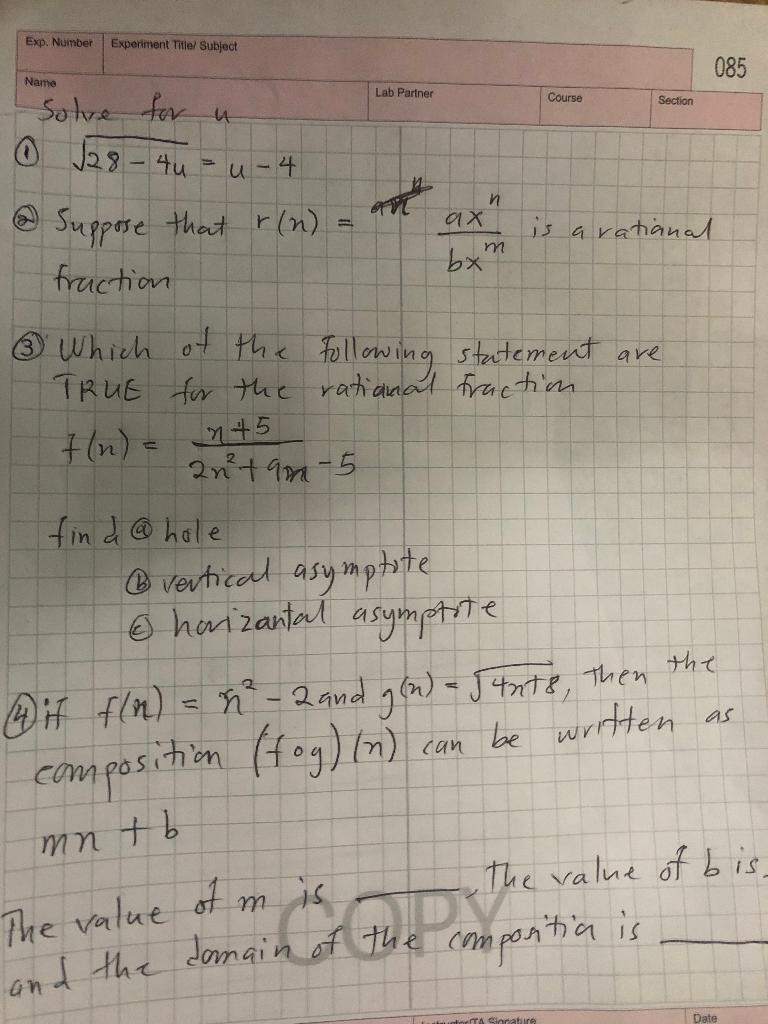 Exp. Number Experiment Title/ Subject
085
Name Lab Partner Course Section
Solve for u
① √28 - 4u = u - 4
② Suppose that r(n) = ax^n / bx^m is a rational
fraction
③ Which of the following statement are
TRUE for the rational fraction
f(n) = n+5 / 2n²+9n-5
find ⓐ hole
ⓑ vertical asymptote
ⓒ horizantal asymptote
④ if f(n) = n² - 2 and g(n) = √4n+8, then the
composition (fog)(n) can be written as
mn + b
The value of m is ____, the value of b is
and the domain of the composition is ____
COPY
Instructor/TA Signature Date